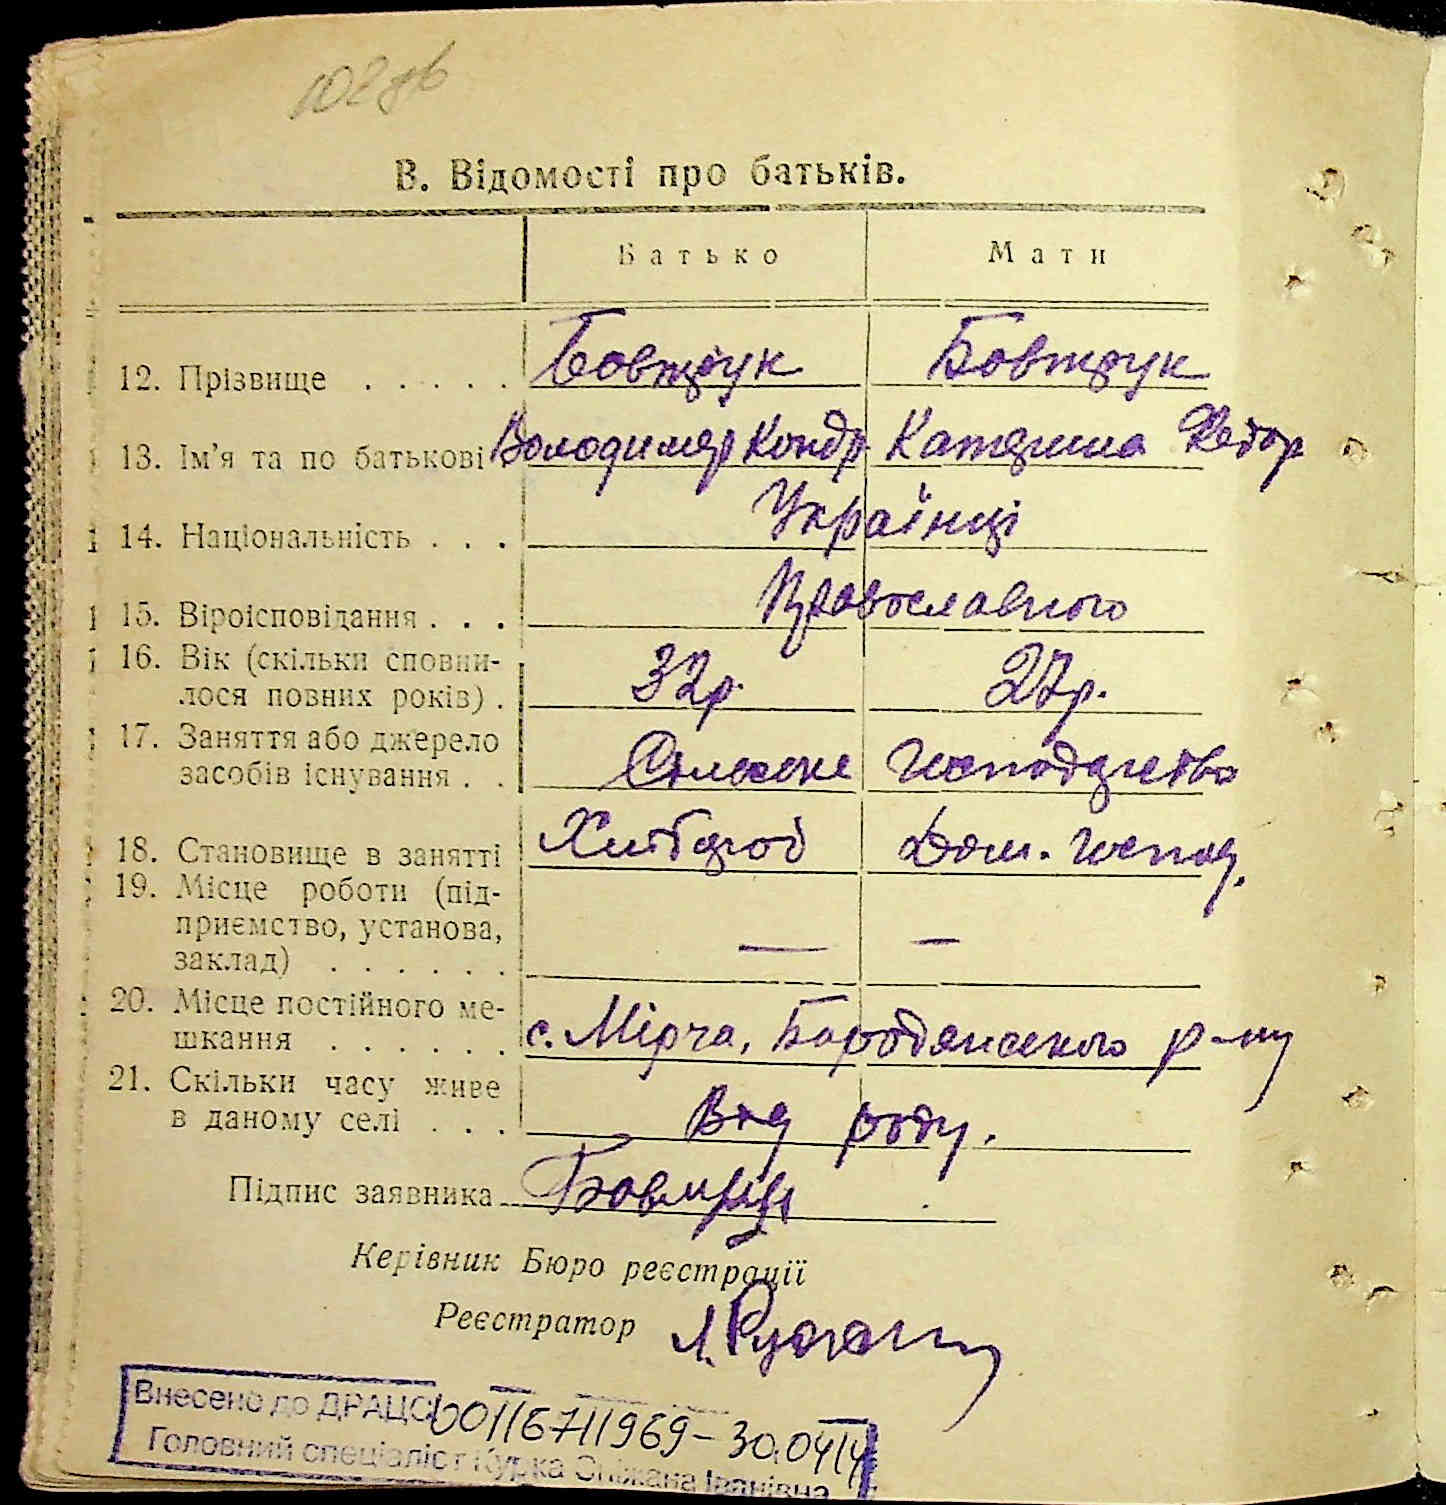 В. Відомості про батьків.
Батько Мати
12. Прізвище . . . . . Бовтрук Бовтрук
13. Ім'я та по батькові Володимир Кондр. Катерина Федор
14. Національність . . . Українці
15. Віроісповідання . . . Православного
16. Вік (скільки сповни-
лося повних років) . 32р. 27р.
17. Заняття або джерело
засобів існування . . Сільське господарство
18. Становище в занятті Хлібороб Дом. господ.
19. Місце роботи (під-
приємство, установа,
заклад) . . . . . . — —
20. Місце постійного ме-
шкання . . . . . . с. Мірча, Бородянського р-ну
21. Скільки часу живе
в даному селі . . . Від роду.
Підпис заявника
Керівник Бюро реєстрації
Реєстратор
Внесено до ДРАЦС 00116711969 – 30.04.14
Головний спеціаліст Курка Сніжана Іванівна